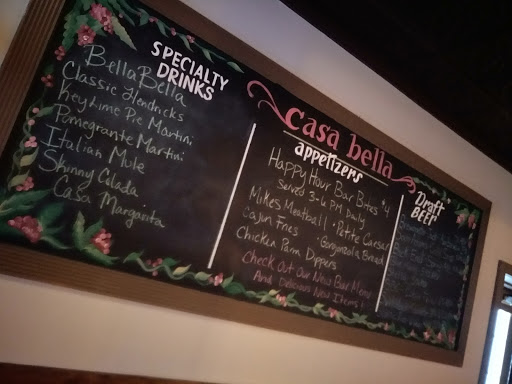 SPECIALTY
DRINKS
BellaBella
Classic Hendricks
Key Lime Pie Martini
Pomegrante Martini
Italian Mule
Skinny Colada
Casa Margarita
casa bella
appetizers
Happy Hour Bar Bites $4
Served 3-6 PM Daily
Mikes Meatball · Petite Caesar
Cajun Fries · Gorgonzola Bread
Chicken Parm Dippers
Check Out Our New Bar Menu
And Delicious New Items!
Draft
BEER